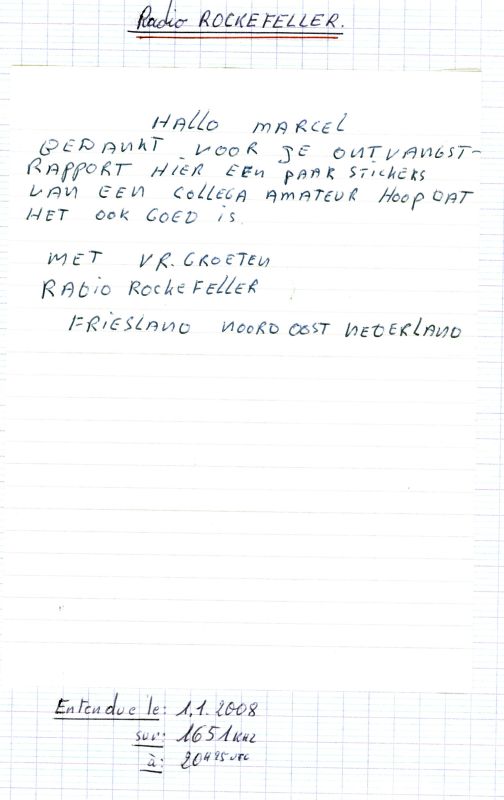 Radio ROCKEFELLER.
HALLO MARCEL
BEDANKT VOOR JE ONTVANGST-
RAPPORT HIER EEN PAAR STICKERS
VAN EEN COLLEGA AMATEUR HOOP DAT
HET OOK GOED IS.
MET VR. GROETEN
RADIO ROCKEFELLER
FRIESLAND NOORD OOST NEDERLAND
Entendue le: 1.1.2008
sur: 1651 KHz
à: 20H25 UTC